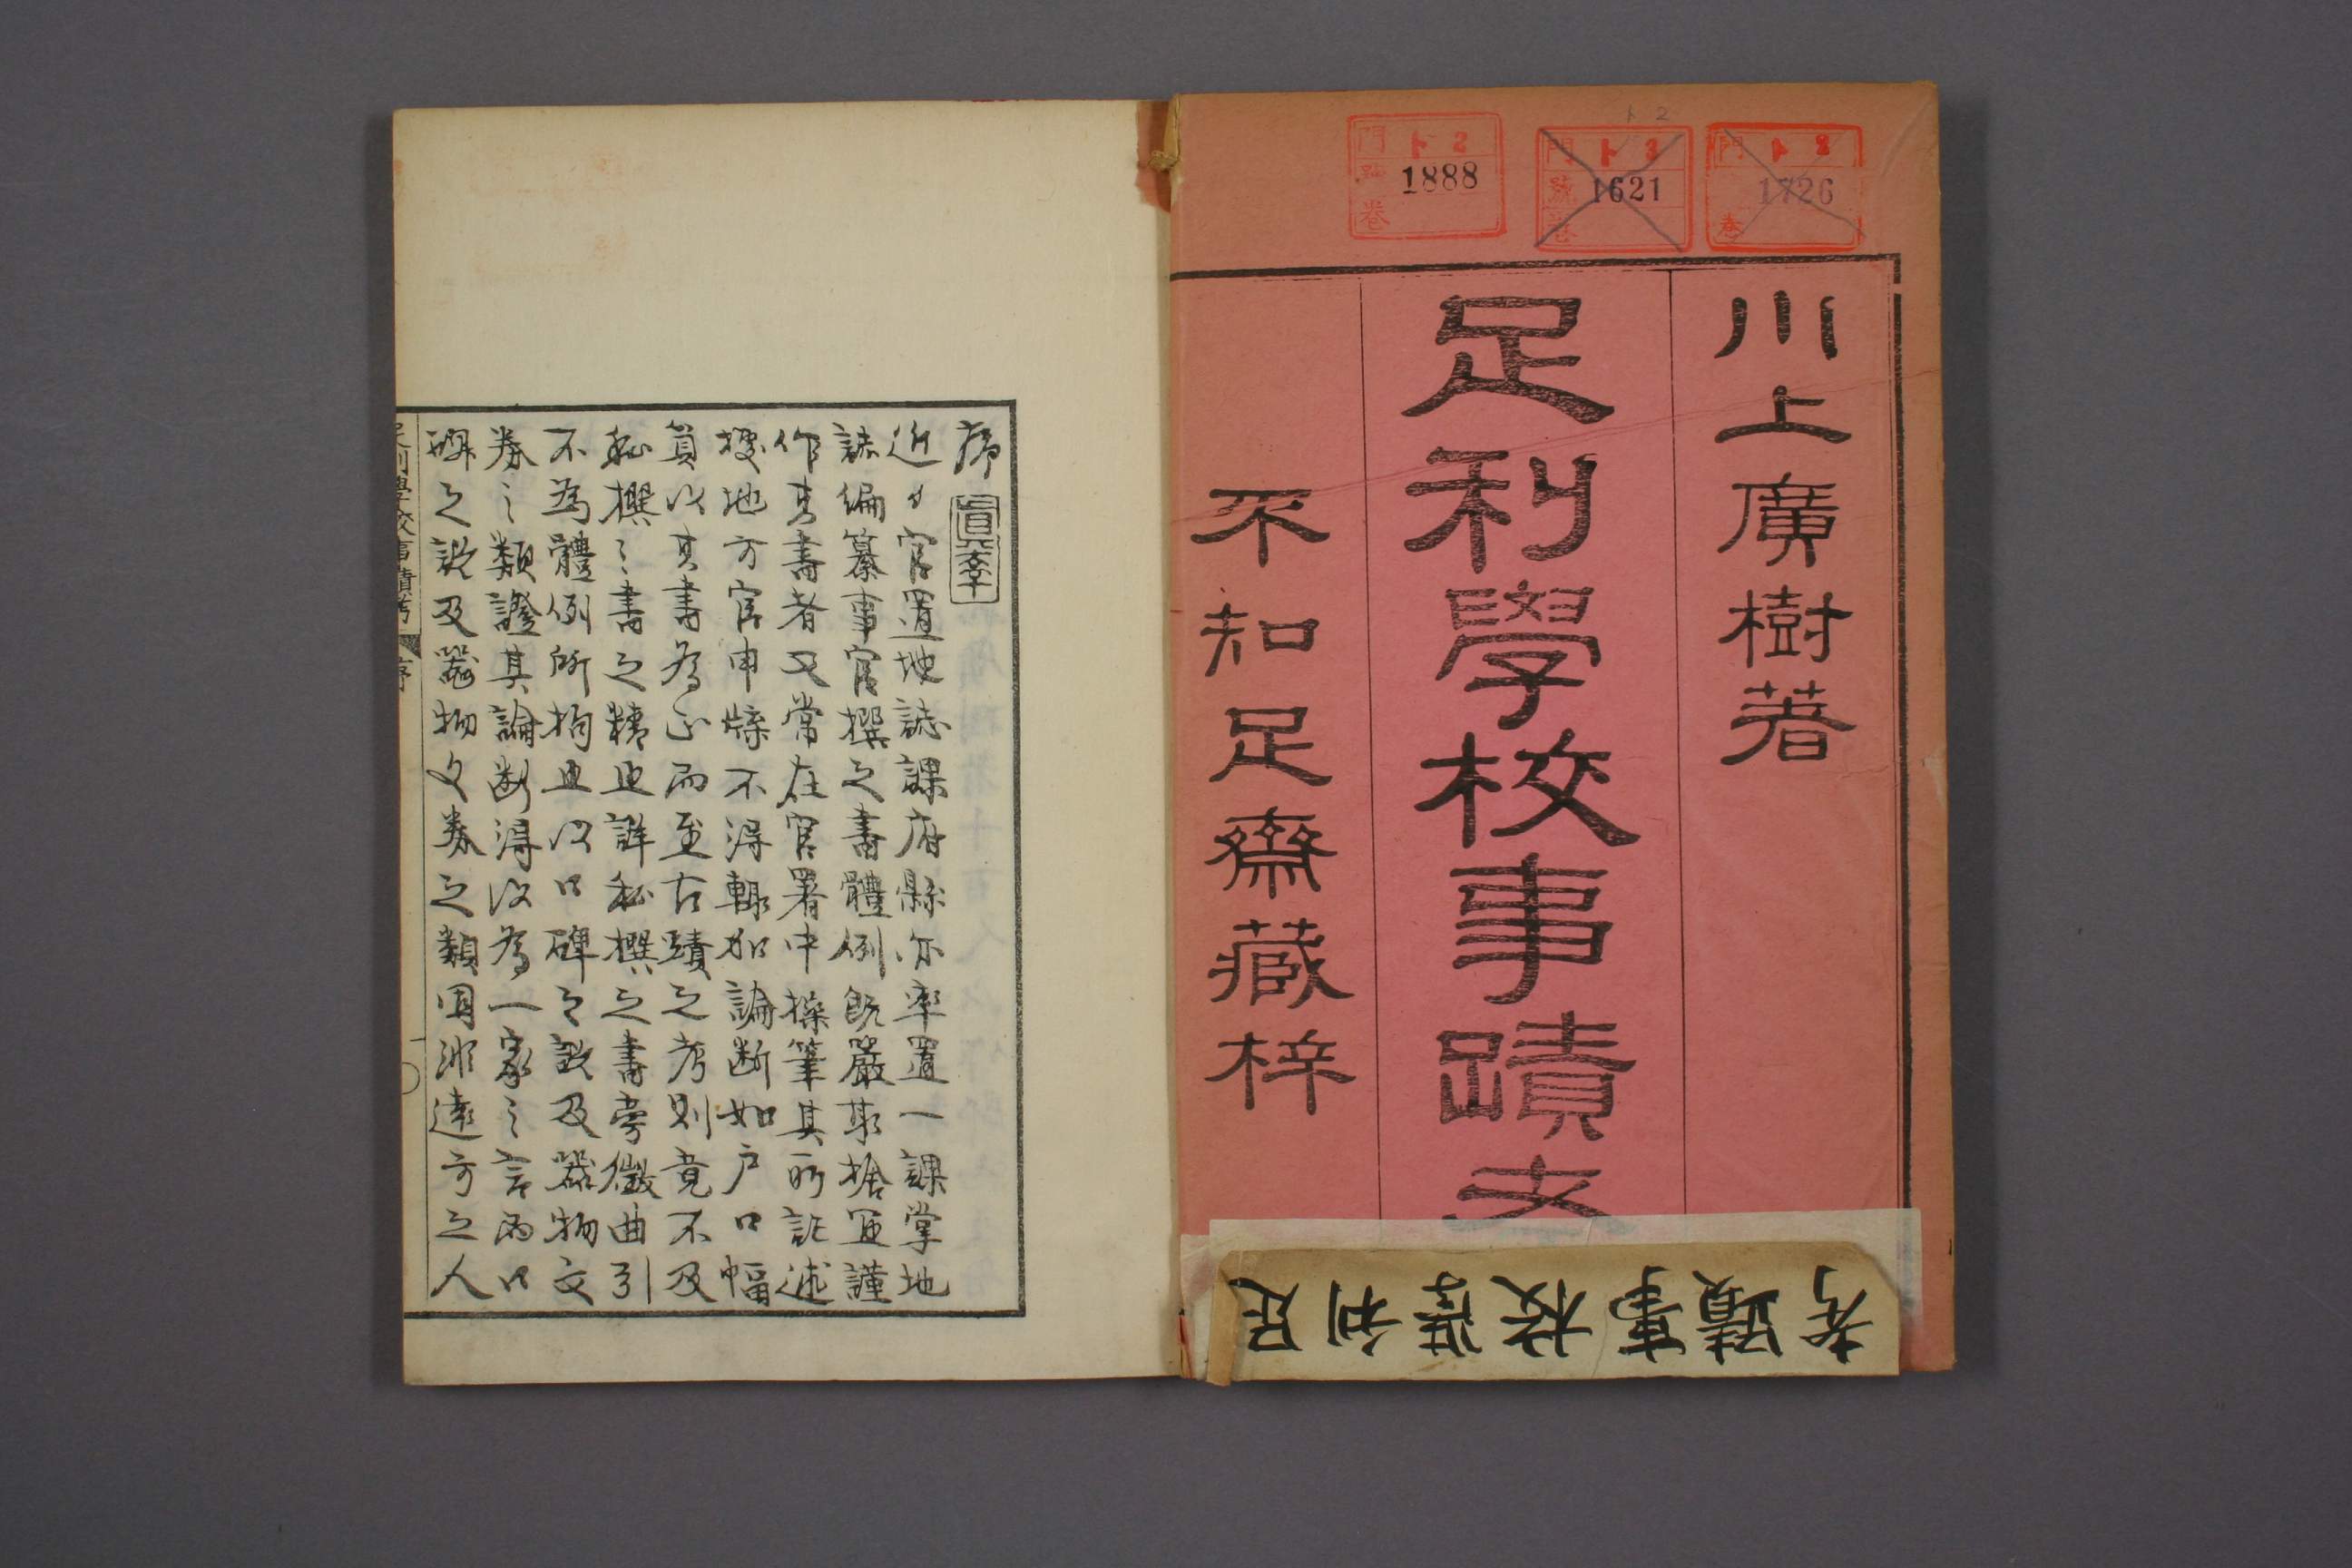 川上廣樹著
足利學校事蹟考
不知足齋藏梓
門 ト 2
號 1888
卷
ト 2
門
號 1621
卷
門
1726
卷
足利學校事蹟考
序
近者官置地誌課府縣亦率置一課掌地
誌編纂事官撰之書體例既嚴取捨宜謹
作其書者又常在官署中操筆其所記述
據地方官申牒不得輙加論斷如戸口幅
員以其書為正而至古蹟之考則竟不及
私撰之書之精也詳私撰之書旁徵曲引
不為體例所拘也以口碑之説及器物文
券之類證其論斷得以為一家之言而口
碑之説及器物文券之類固非遠方之人
足利學校事蹟考 序 一